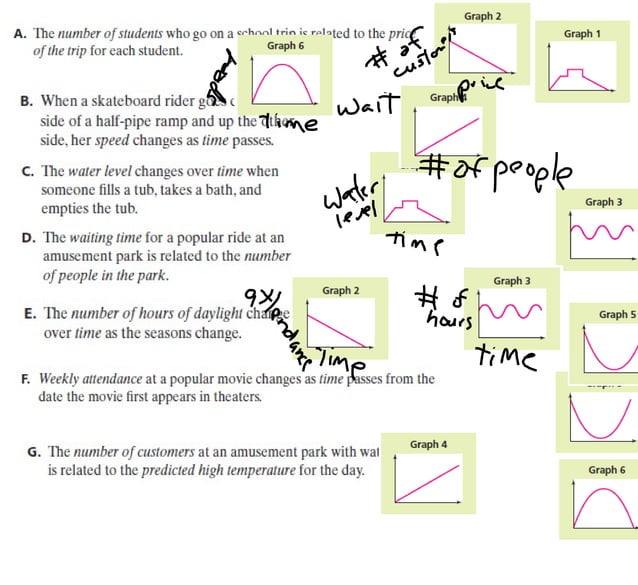 A. The number of students who go on a school trip is related to the price
of the trip for each student.
Graph 2
Graph 1
Graph 6
speed
time
# of
customers
price
B. When a skateboard rider goes
side of a half-pipe ramp and up the other
side, her speed changes as time passes.
wait
Graph 4
# of people
C. The water level changes over time when
someone fills a tub, takes a bath, and
empties the tub.
water
level
time
Graph 3
D. The waiting time for a popular ride at an
amusement park is related to the number
of people in the park.
Graph 2
Graph 3
# of
hours
time
Graph 5
E. The number of hours of daylight change
over time as the seasons change.
Time
F. Weekly attendance at a popular movie changes as time passes from the
date the movie first appears in theaters.
G. The number of customers at an amusement park with wat
is related to the predicted high temperature for the day.
Graph 4
Graph 6